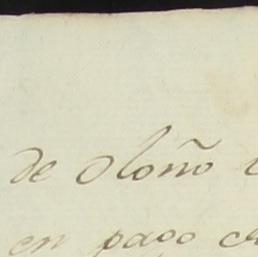 de otoño
en pago